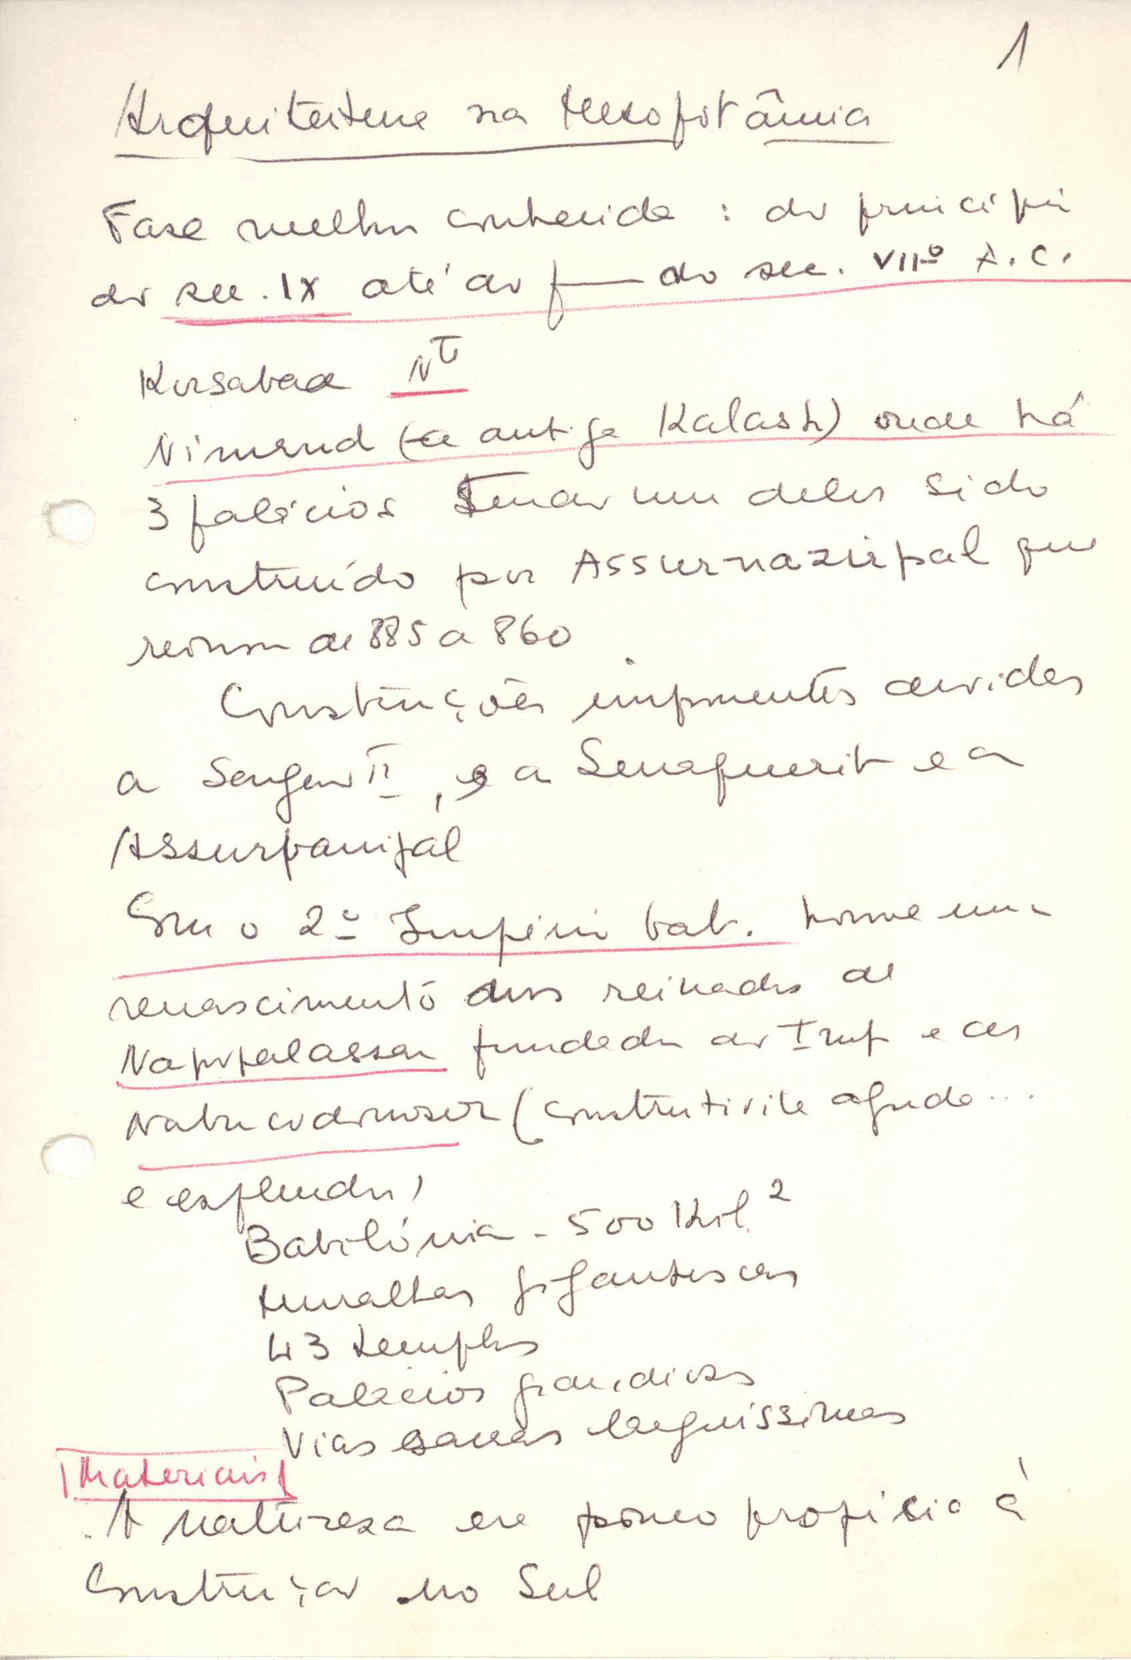 1
Arquitectura na Mesopotâmia
Fase melhor conhecida : do princípio
do sec. IX até ao fim do sec. VIIº A.C.
Korsabad
Nimrud (a antiga Kalash) onde há
3 palácios tendo um deles sido
construído por Assurnazirpal que
reinou de 885 a 860
Construções imponentes devidas
a Sargão II, e a Senaquerib e a
Assurbanipal
Com o 2º Império bab. houve um
renascimento dos reinados de
Napopalassar fundador do Imp e de
Nabucodonosor (construtivite aguda...
e esplendor)
Babilónia - 500 Kil.²
Muralhas gigantescas
43 templos
Palácios grandiosos
Vias sacras larguíssimas
Materiais
A natureza era pouco propícia à
Construção no Sul